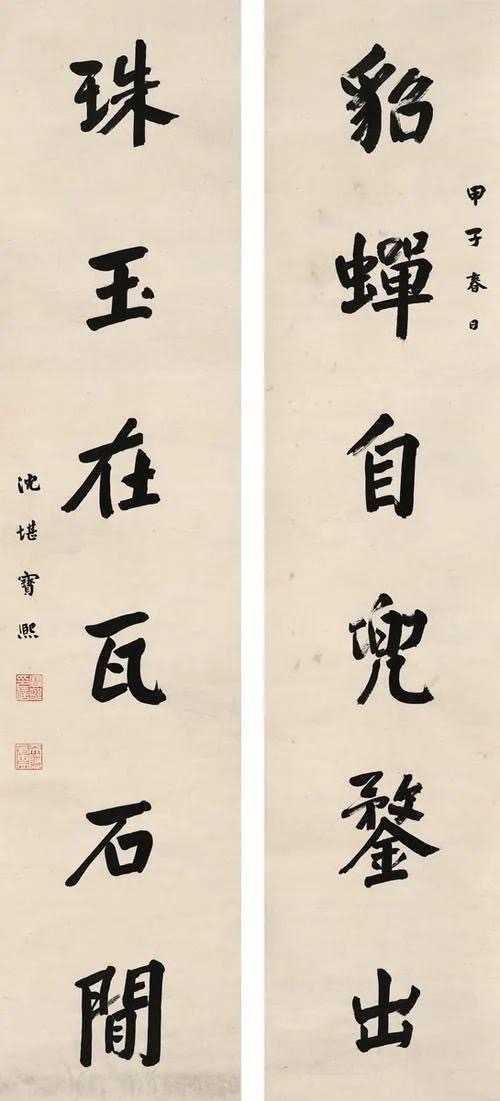 貂蟬自兜鍪出
甲子春日
珠玉在瓦石間
沈堪寶熙